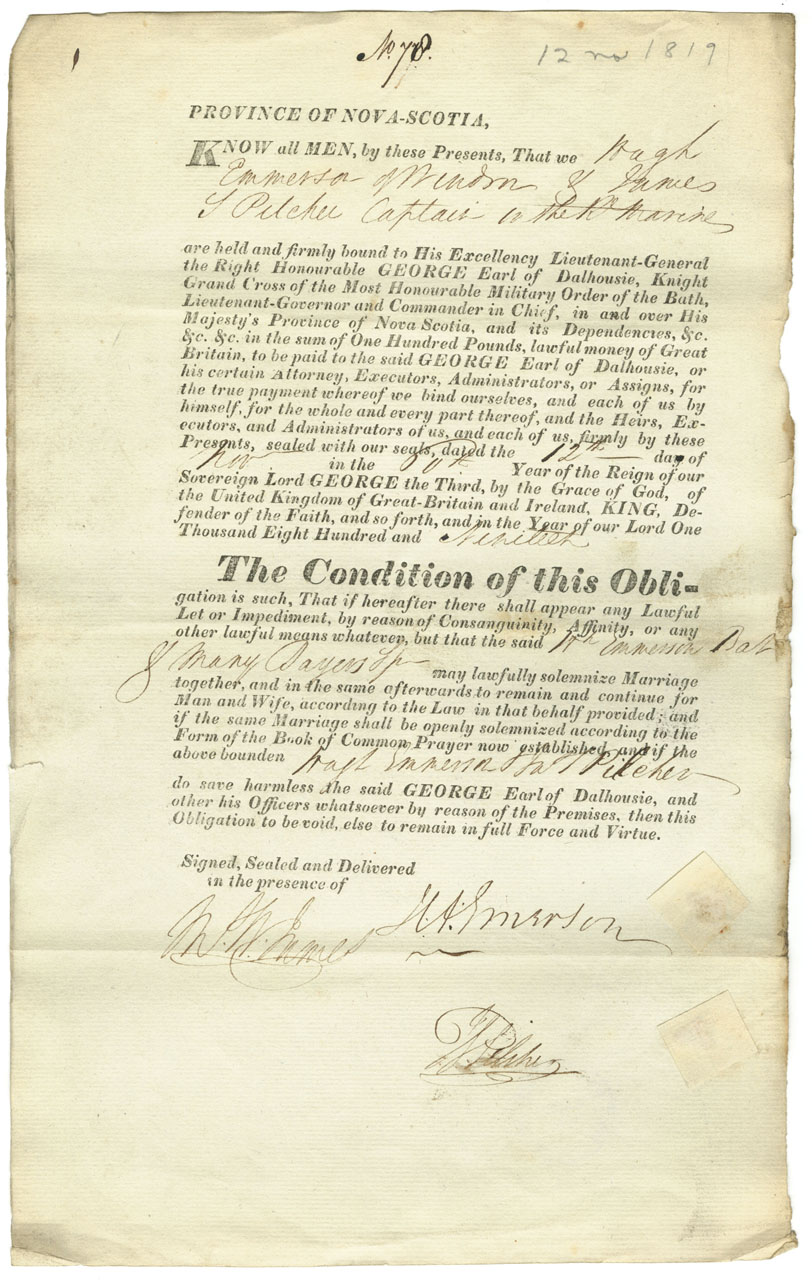 No. 78.
12 no 1819
PROVINCE OF NOVA-SCOTIA,
KNOW all MEN, by these Presents, That we Hugh
Emmerson of Windsor & James
S Pilcher Captain in the Rl Marines
are held and firmly bound to His Excellency Lieutenant-General
the Right Honourable GEORGE Earl of Dalhousie, Knight
Grand Cross of the Most Honourable Military Order of the Bath,
Lieutenant-Governor and Commander in Chief, in and over His
Majesty's Province of Nova Scotia, and its Dependencies, &c.
&c. &c. in the sum of One Hundred Pounds, lawful money of Great
Britain, to be paid to the said GEORGE Earl of Dalhousie, or
his certain Attorney, Executors, Administrators, or Assigns, for
the true payment whereof we bind ourselves, and each of us by
himself, for the whole and every part thereof, and the Heirs, Ex-
ecutors, and Administrators of us, and each of us, firmly by these
Presents, sealed with our seals, dated the 12th day of
Nov in the 60th Year of the Reign of our
Sovereign Lord GEORGE the Third, by the Grace of God, of
the United Kingdom of Great-Britain and Ireland, KING, De-
fender of the Faith, and so forth, and in the Year of our Lord One
Thousand Eight Hundred and Nineteen
The Condition of this Obli-
gation is such, That if hereafter there shall appear any Lawful
Let or Impediment, by reason of Consanguinity, Affinity, or any
other lawful means whatever, but that the said Hh Emmerson Bat
& Mary Sayers Sp may lawfully solemnize Marriage
together, and in the same afterwards to remain and continue for
Man and Wife, according to the Law in that behalf provided; and
if the same Marriage shall be openly solemnized according to the
Form of the Book of Common Prayer now established, and if the
above bounden Hugh Emmerson & Pilcher
do save harmless the said GEORGE Earl of Dalhousie, and
other his Officers whatsoever by reason of the Premises, then this
Obligation to be void, else to remain in full Force and Virtue.
Signed, Sealed and Delivered
in the presence of
H. Emerson
James
Pilcher